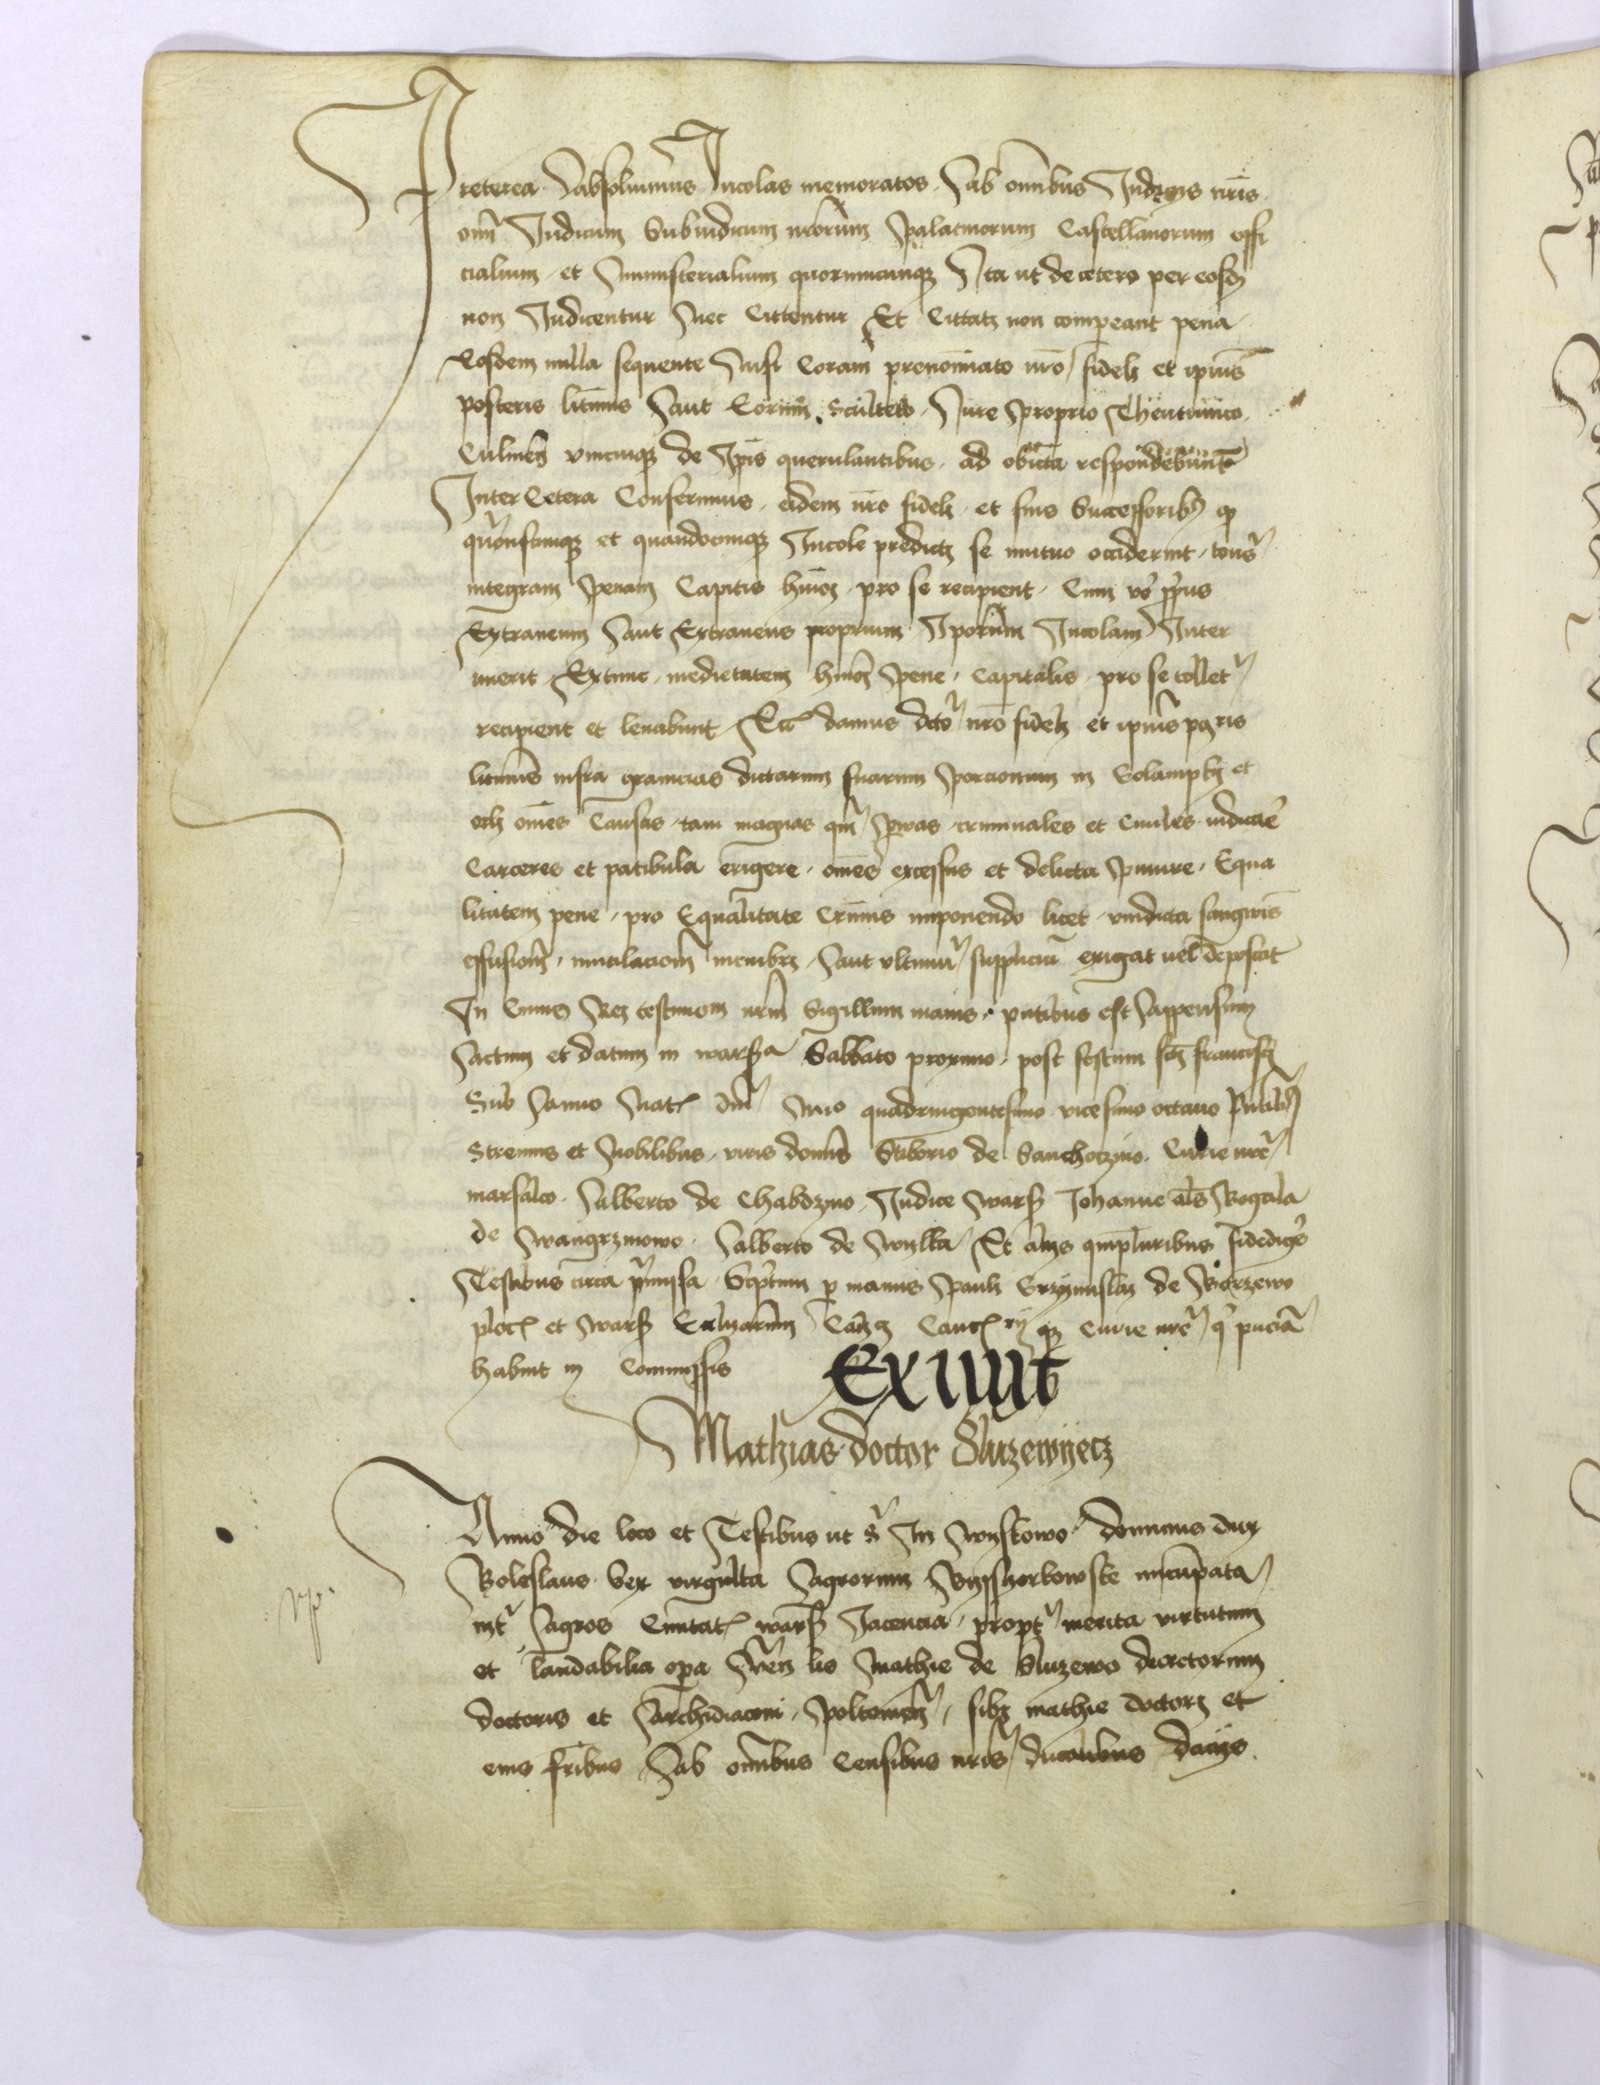 Preterea absoluimus Incolas memoratos ab omibus Judicys nris
omi Judicum Subiudicum nrorum palatinorum Castellanorum offi
cialium et ministerialium quorumcunqz Ita ut de cetero per eosdz
non Judicentur nec Cittentur Et Cittati non compeant pena
Eosdem nulla sequente nisi Coram prenomiato nro fideli et ipius
posteris litimis aut Eorum Sculteto Jure proprio Theutunico
Culmen vnicuiqz de Ipis querulantibus ad obicta respondebunt
Inter Cetera Conferimus eidem nro fideli et suis Successoribz qz
et quandocunqz Incole predicti se mutuo occiderint
integram penam Capitis hmoi pro se recipient Cum vo
Extraneum aut Extraneus proprium Iporum Incolam Inter
imerit Extunc medietatem hmoi pene Capitalis pro se tollet
recipient et leuabunt Ecia damus dcto nro fideli et ipius
litimis infra granicias dictarum suarum porcionum in Golamphi et
omes Causas tam magnas qm pruas criminales et Ciuiles iudicare
Carceres et patibula erigere omes excessus et delicta punire Equa
litatem pene pro Equalitate Crimis imponendo licet vindicta sangwis
effusiom mutilaciom membri aut vltimu suppliciu exigat uel deposcat
In Cuius Rei testimom nrm Sigillum maius pntibus est appensum
Actum et datum in warsa Sabbato proximo post festum sci francisci
Sub Anno Nati dni Mo quadringentesimo vicesimo octauo Pntibz
Strenuis et Nobilibus viris domis Stiborio de Sanchoczino Curie nre
marsalco Alberto de Chabdzino Judice wars Johanne als Rogala
de wangrzinowo Alberto de wylka Et alys qmpluribus fidedigs
Testibus circa pmissa Scptum p manus pauli Grzymislai de Borzewo
ploc et wars Eccliarum Canci Cancrii qz Curie nre q pncia
habuit in Commissis
Exiuit
Mathias doctor Sluzewyecz
Anno die loco et Testibus ut s In wyskowo dominus dux
Boleslaus Sex virgulta agrorum wysszorkowske nucupata
int agros Ciuitat wars Jacencia propt merita virtutum
et laudabilia opa Mathie de Sluzewo decretorum
doctoris et Archidiaconi poltouien sibi mathie doctori et
eius fribus ab omibus Censibus nris ducalibus dacys